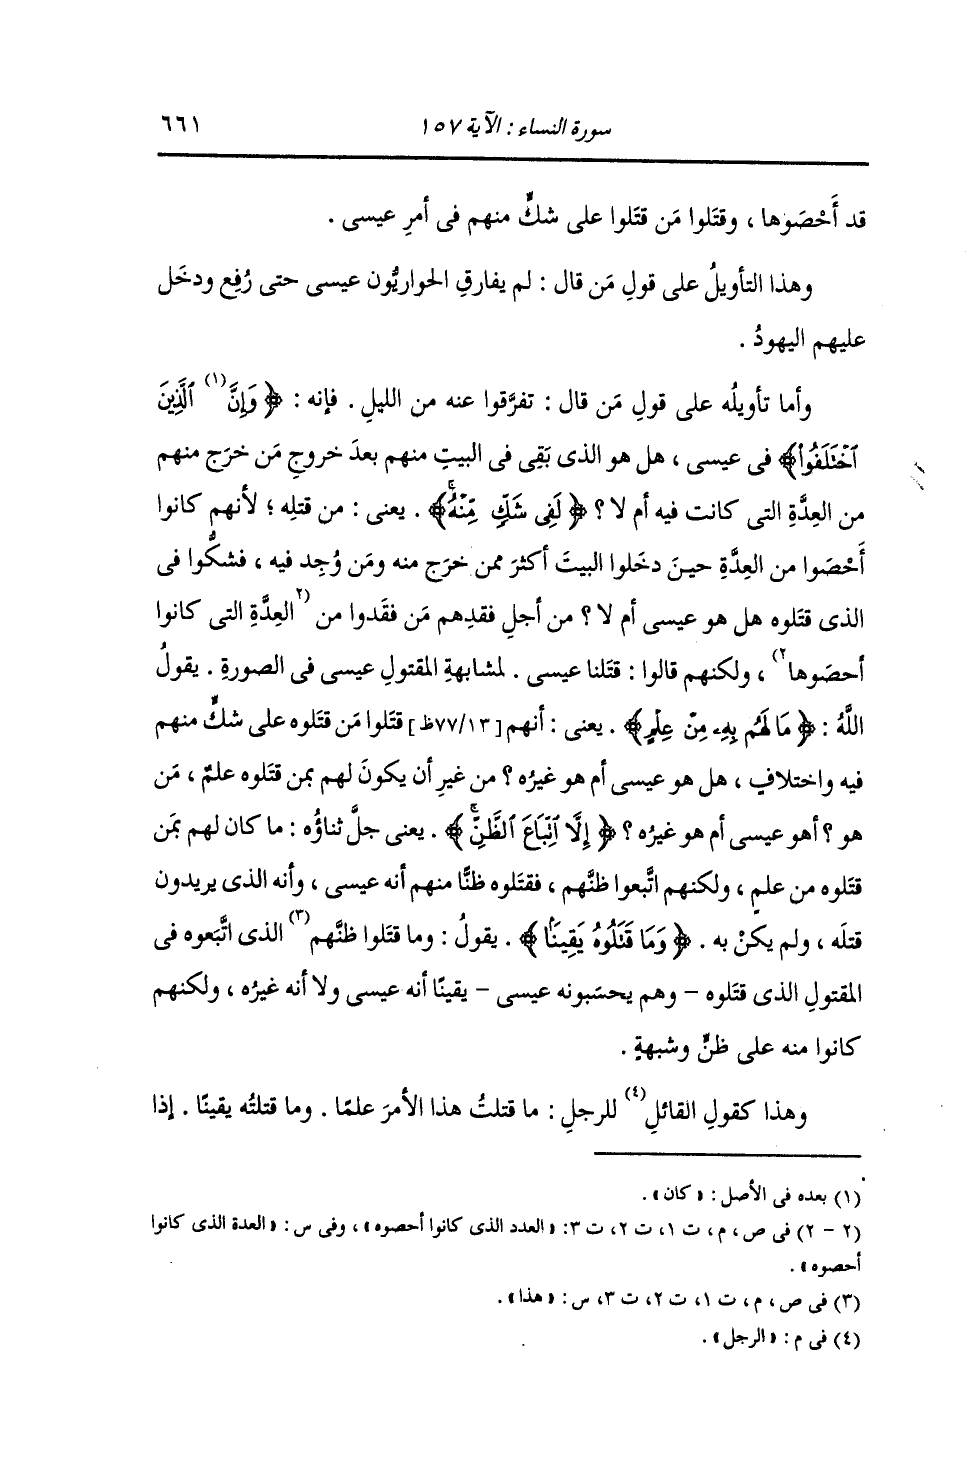 سورة النساء : الآية ١٥٧ ٦٦١
قد أَحْصَوها ، وقتَلوا مَن قتَلوا على شكٍّ منهم فى أمرِ عيسى .
وهذا التأويلُ على قولِ مَن قال : لم يفارقِ الحواريُّون عيسى حتى رُفِع ودخَل
عليهم اليهودُ .
وأما تأويلُه على قولِ مَن قال : تفرَّقوا عنه من الليلِ . فإنه : ﴿ وَإِنَّ(١) ٱلَّذِينَ
ٱخْتَلَفُوا۟﴾ فى عيسى ، هل هو الذى بَقِى فى البيتِ منهم بعدَ خروجِ مَن خرَج منهم
من العِدَّةِ التى كانت فيه أم لا ؟ ﴿ لَفِى شَكٍّ مِّنْهُ ۚ﴾ . يعنى : من قتلِه ؛ لأنهم كانوا
أَحْصَوا من العِدَّةِ حينَ دخَلوا البيتَ أكثرَ ممن خرَج منه ومَن وُجِد فيه ، فشكُّوا فى
الذى قتَلوه هل هو عيسى أم لا ؟ من أجلِ فقدِهم مَن فقَدوا من ٢)العِدَّةِ التى كانوا
أحصَوها٢) ، ولكنهم قالوا : قتَلنا عيسى . لمشابهةِ المقتولِ عيسى فى الصورةِ . يقولُ
اللَّهُ : ﴿ مَا لَهُم بِهِۦ مِنْ عِلْمٍ ﴾ . يعنى : أنهم [ ٧٧/١٣ظ ] قتَلوا مَن قتَلوه على شكٍّ منهم
فيه واختلافٍ ، هل هو عيسى أم هو غيرُه ؟ من غيرِ أن يكونَ لهم بمن قتَلوه علمٌ ، مَن
هو ؟ أهو عيسى أم هو غيرُه ؟ ﴿ إِلَّا ٱتِّبَاعَ ٱلظَّنِّ ۚ ﴾ . يعنى جلَّ ثناؤُه : ما كان لهم بمَن
قتَلوه من علمٍ ، ولكنهم اتَّبعوا ظنَّهم ، فقتَلوه ظنًّا منهم أنه عيسى ، وأنه الذى يريدون
قتلَه ، ولم يكنْ به . ﴿ وَمَا قَتَلُوهُ يَقِينًۢا ﴾ . يقولُ : وما قتَلوا ظنَّهم(٣) الذى اتَّبَعوه فى
المقتولِ الذى قتَلوه - وهم يحسَبونه عيسى - يقينًا أنه عيسى ولا أنه غيرُه ، ولكنهم
كانوا منه على ظنٍّ وشبهةٍ .
وهذا كقولِ القائلِ(٤) للرجلِ : ما قتلتُ هذا الأمرَ علمًا . وما قتلتُه يقينًا . إذا
(١) بعده فى الأصل : « كان » .
(٢ - ٢) فى ص ، م ، ت ١ ، ت ٢ ، ت ٣ : « العدد الذى كانوا أحصوه » ، وفى س : « العدة الذى كانوا
أحصوه » .
(٣) فى ص ، م ، ت ١ ، ت ٢ ، ت ٣ ، س : « هذا » .
(٤) فى م : « الرجل » .